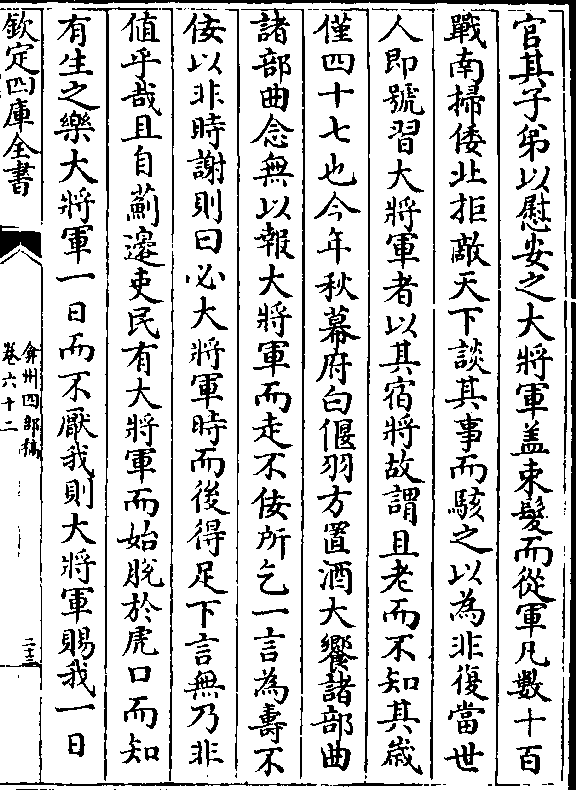 官其子弟以慰安之大將軍盖束髮而從軍凡數十百
戰南掃倭北拒敵天下談其事而駭之以為非復當世
人即號習大將軍者以其宿將故謂且老而不知其歲
僅四十七也今年秋幕府白偃羽方置酒大饗諸部曲
諸部曲念無以報大將軍而走不佞所乞一言為壽不
佞以非時謝則曰必大將軍時而後得足下言無乃非
值乎哉且自薊邊吏民有大將軍而始脫於虎口而知
有生之樂大將軍一日而不厭我則大將軍賜我一日
欽定四庫全書
弇州四部稿
卷六十二
二十三